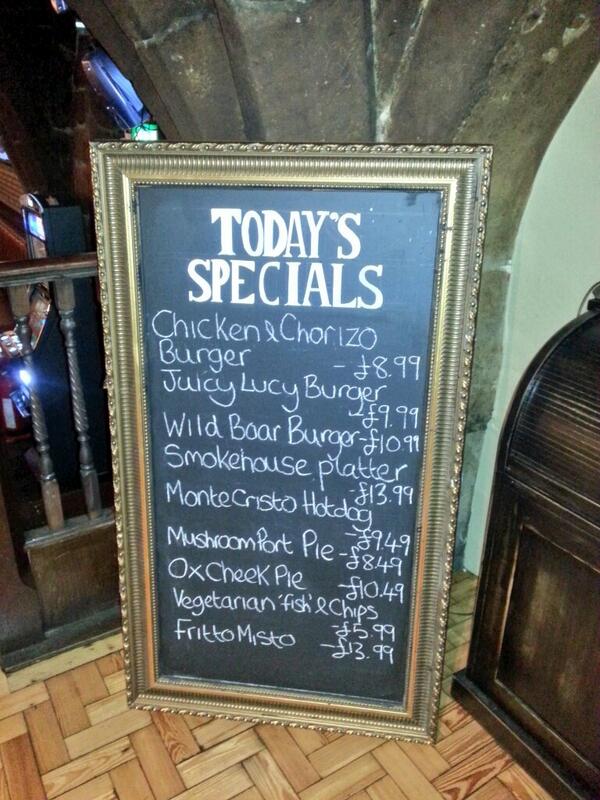 TODAY'S
SPECIALS
Chicken & Chorizo
Burger - £8.99
Juicy Lucy Burger
- £9.99
Wild Boar Burger - £10.99
Smokehouse platter
- £13.99
Monte Cristo Hotdog
- £9.49
Mushroom Port Pie - £8.49
Ox Cheek Pie
- £10.49
Vegetarian 'fish' & Chips
- £5.99
Fritto Misto - £13.99